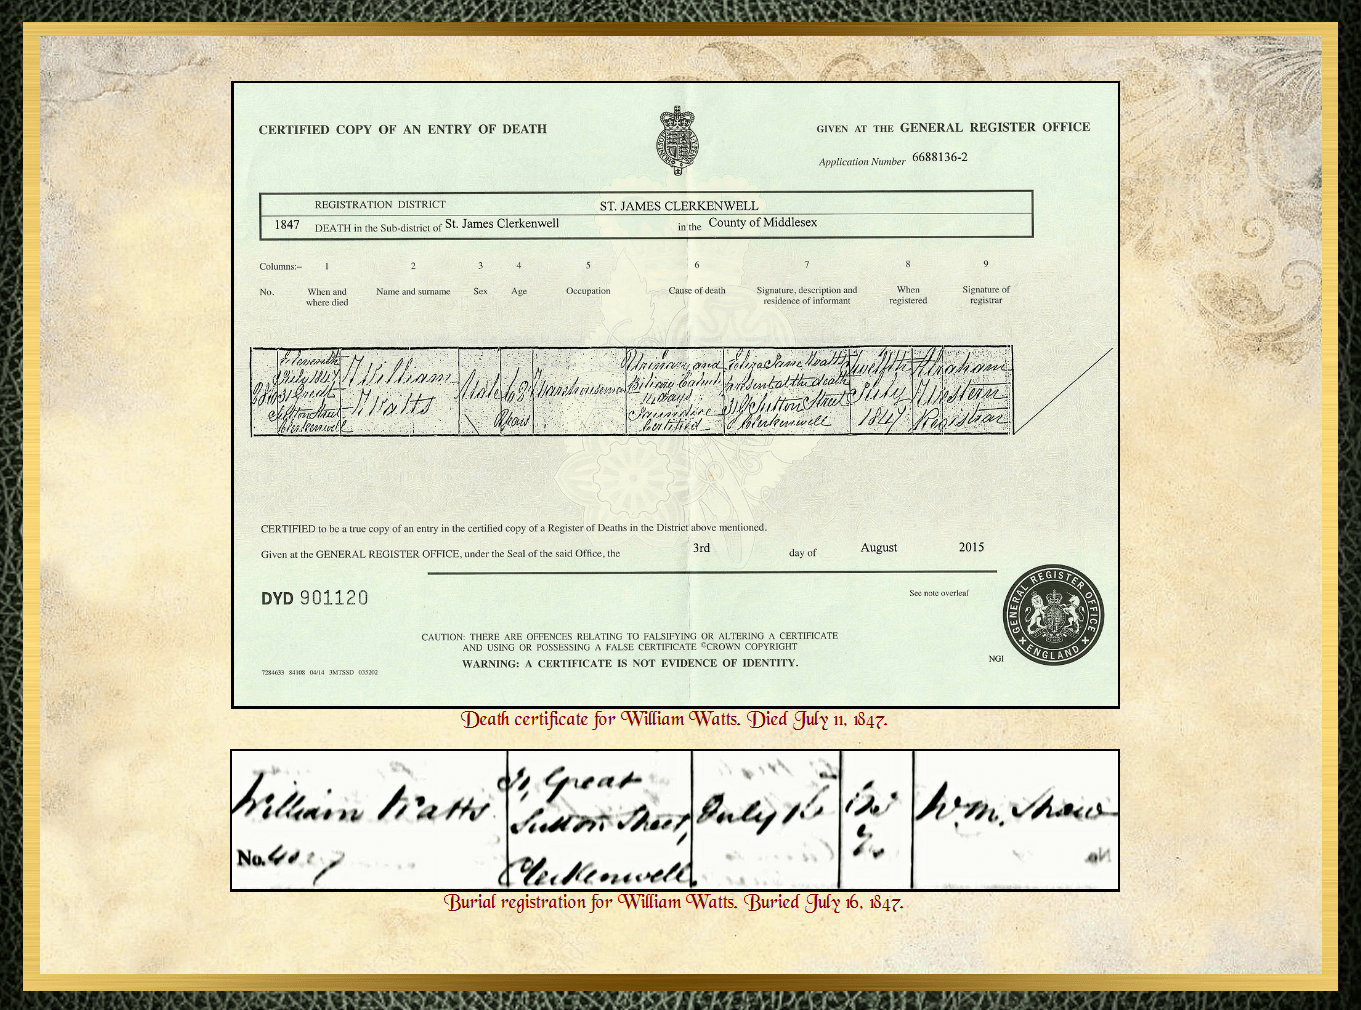 CERTIFIED COPY OF AN ENTRY OF DEATH
GIVEN AT THE GENERAL REGISTER OFFICE
Application Number 6688136-2
REGISTRATION DISTRICT ST. JAMES CLERKENWELL
1847 DEATH in the Sub-district of St. James Clerkenwell in the County of Middlesex
Columns:– 1 2 3 4 5 6 7 8 9
No. When and where died Name and surname Sex Age Occupation Cause of death Signature, description and residence of informant When registered Signature of registrar
Eleventh July 1847 31 Great Sutton Street Clerkenwell
William Watts
Male
68 Years
Warehouseman
Urinary and Biliary Calculi 14 days Jaundice Certified
Eliza Jane Watts present at the death 31 Gt Sutton Street Clerkenwell
Twelfth July 1847
Abraham Registrar
CERTIFIED to be a true copy of an entry in the certified copy of a Register of Deaths in the District above mentioned.
Given at the GENERAL REGISTER OFFICE, under the Seal of the said Office, the 3rd day of August 2015
DYD 901120
See note overleaf
CAUTION: THERE ARE OFFENCES RELATING TO FALSIFYING OR ALTERING A CERTIFICATE
AND USING OR POSSESSING A FALSE CERTIFICATE ©CROWN COPYRIGHT
WARNING: A CERTIFICATE IS NOT EVIDENCE OF IDENTITY.
7284633 84108 04/14 3M7SSD 035202
NGI
GENERAL REGISTER OFFICE
ENGLAND
Death certificate for William Watts. Died July 11, 1847.
William Watts
No.
Great
Sutton Street,
Clerkenwell.
July 16
Wm. Shaw
Burial registration for William Watts. Buried July 16, 1847.